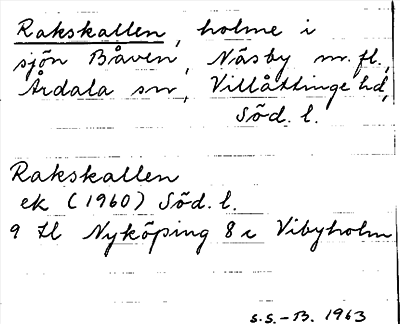 Rakskallen, holme i
sjön Båven, Näsby m. fl.,
Årdala sn, Villåttinge hd,
Söd. l.
Rakskallen
ek (1960) Söd. l.
9 H Nyköping 8 c Vibyholm
S.S.-B. 1963